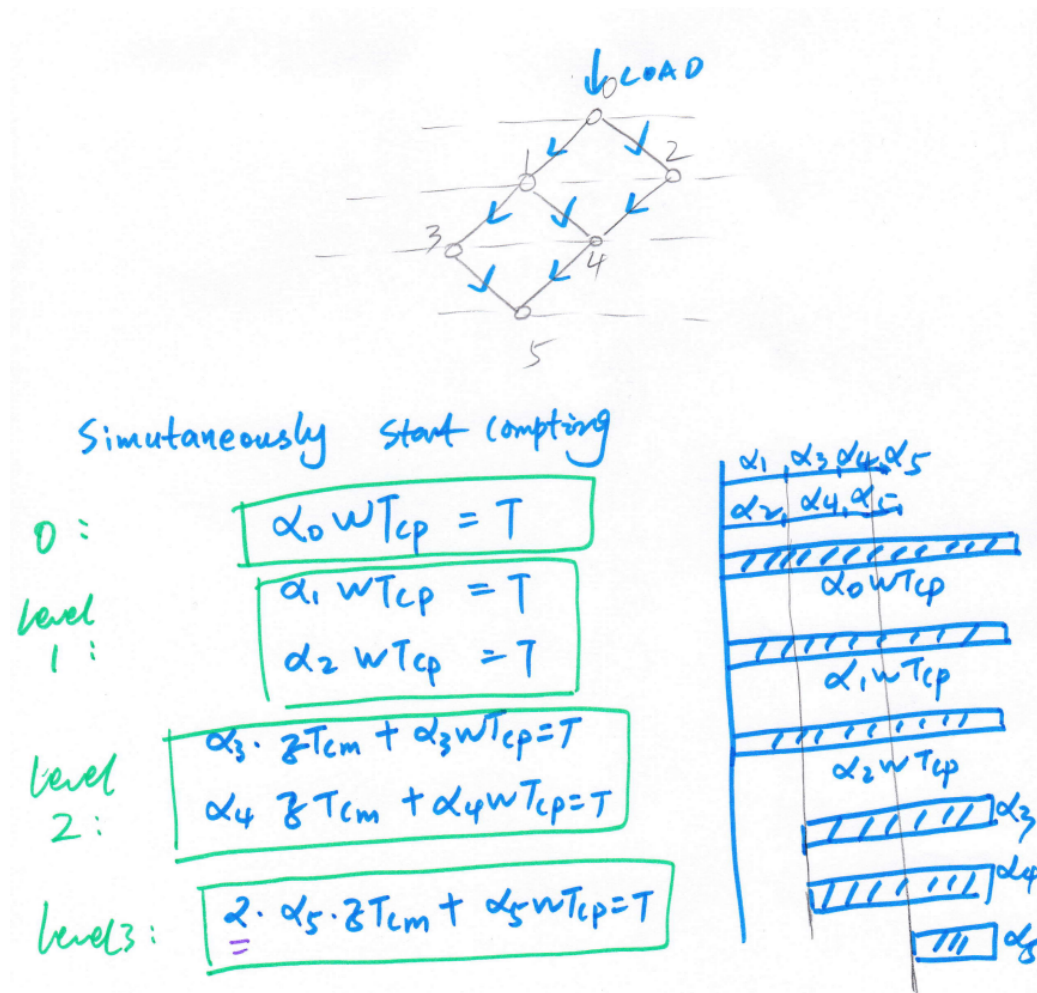 LOAD
0
1
2
3
4
5
Simutaneously start compting
0 : α₀ wTcp = T
Level 1 : α₁ wTcp = T
α₂ wTcp = T
Level 2 : α₃ · zTcm + α₃wTcp=T
α₄ zTcm + α₄wTcp=T
level3 : 2 · α₅ · zTcm + α₅wTcp=T
α₁ α₃ α₄ α₅
α₂ α₄ α₅
α₀wTcp
α₁wTcp
α₂wTcp
α₃
α₄
α₅